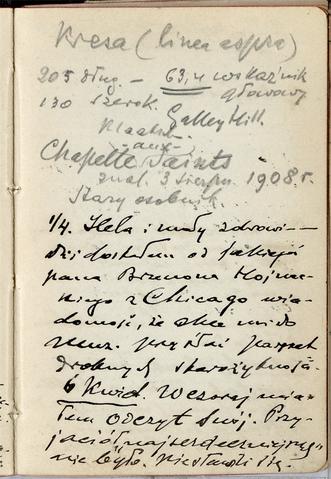 Kresa (linea aspra)
205 dług. — 63,4 wskaźnik
głowowy
130 szerok.
Galley Hill.
Klaatsch
Chapelle aux Saints
znal. 3 Sierpn. 1908 r.
Stary osobnik.
1/4. Hela i mały zdrowi —
dziś dostałem od jakiegoś
pana Brunona Wojna-
kiego z Chicago wia-
domość, że chce mi do
Muz. przysłać parę szt
drobnych starożytności.
6 Kwid. Wczoraj mia-
łem odczyt swój. Przy-
jaciół najserdeczniejszych
nie było. Nie stawili się.